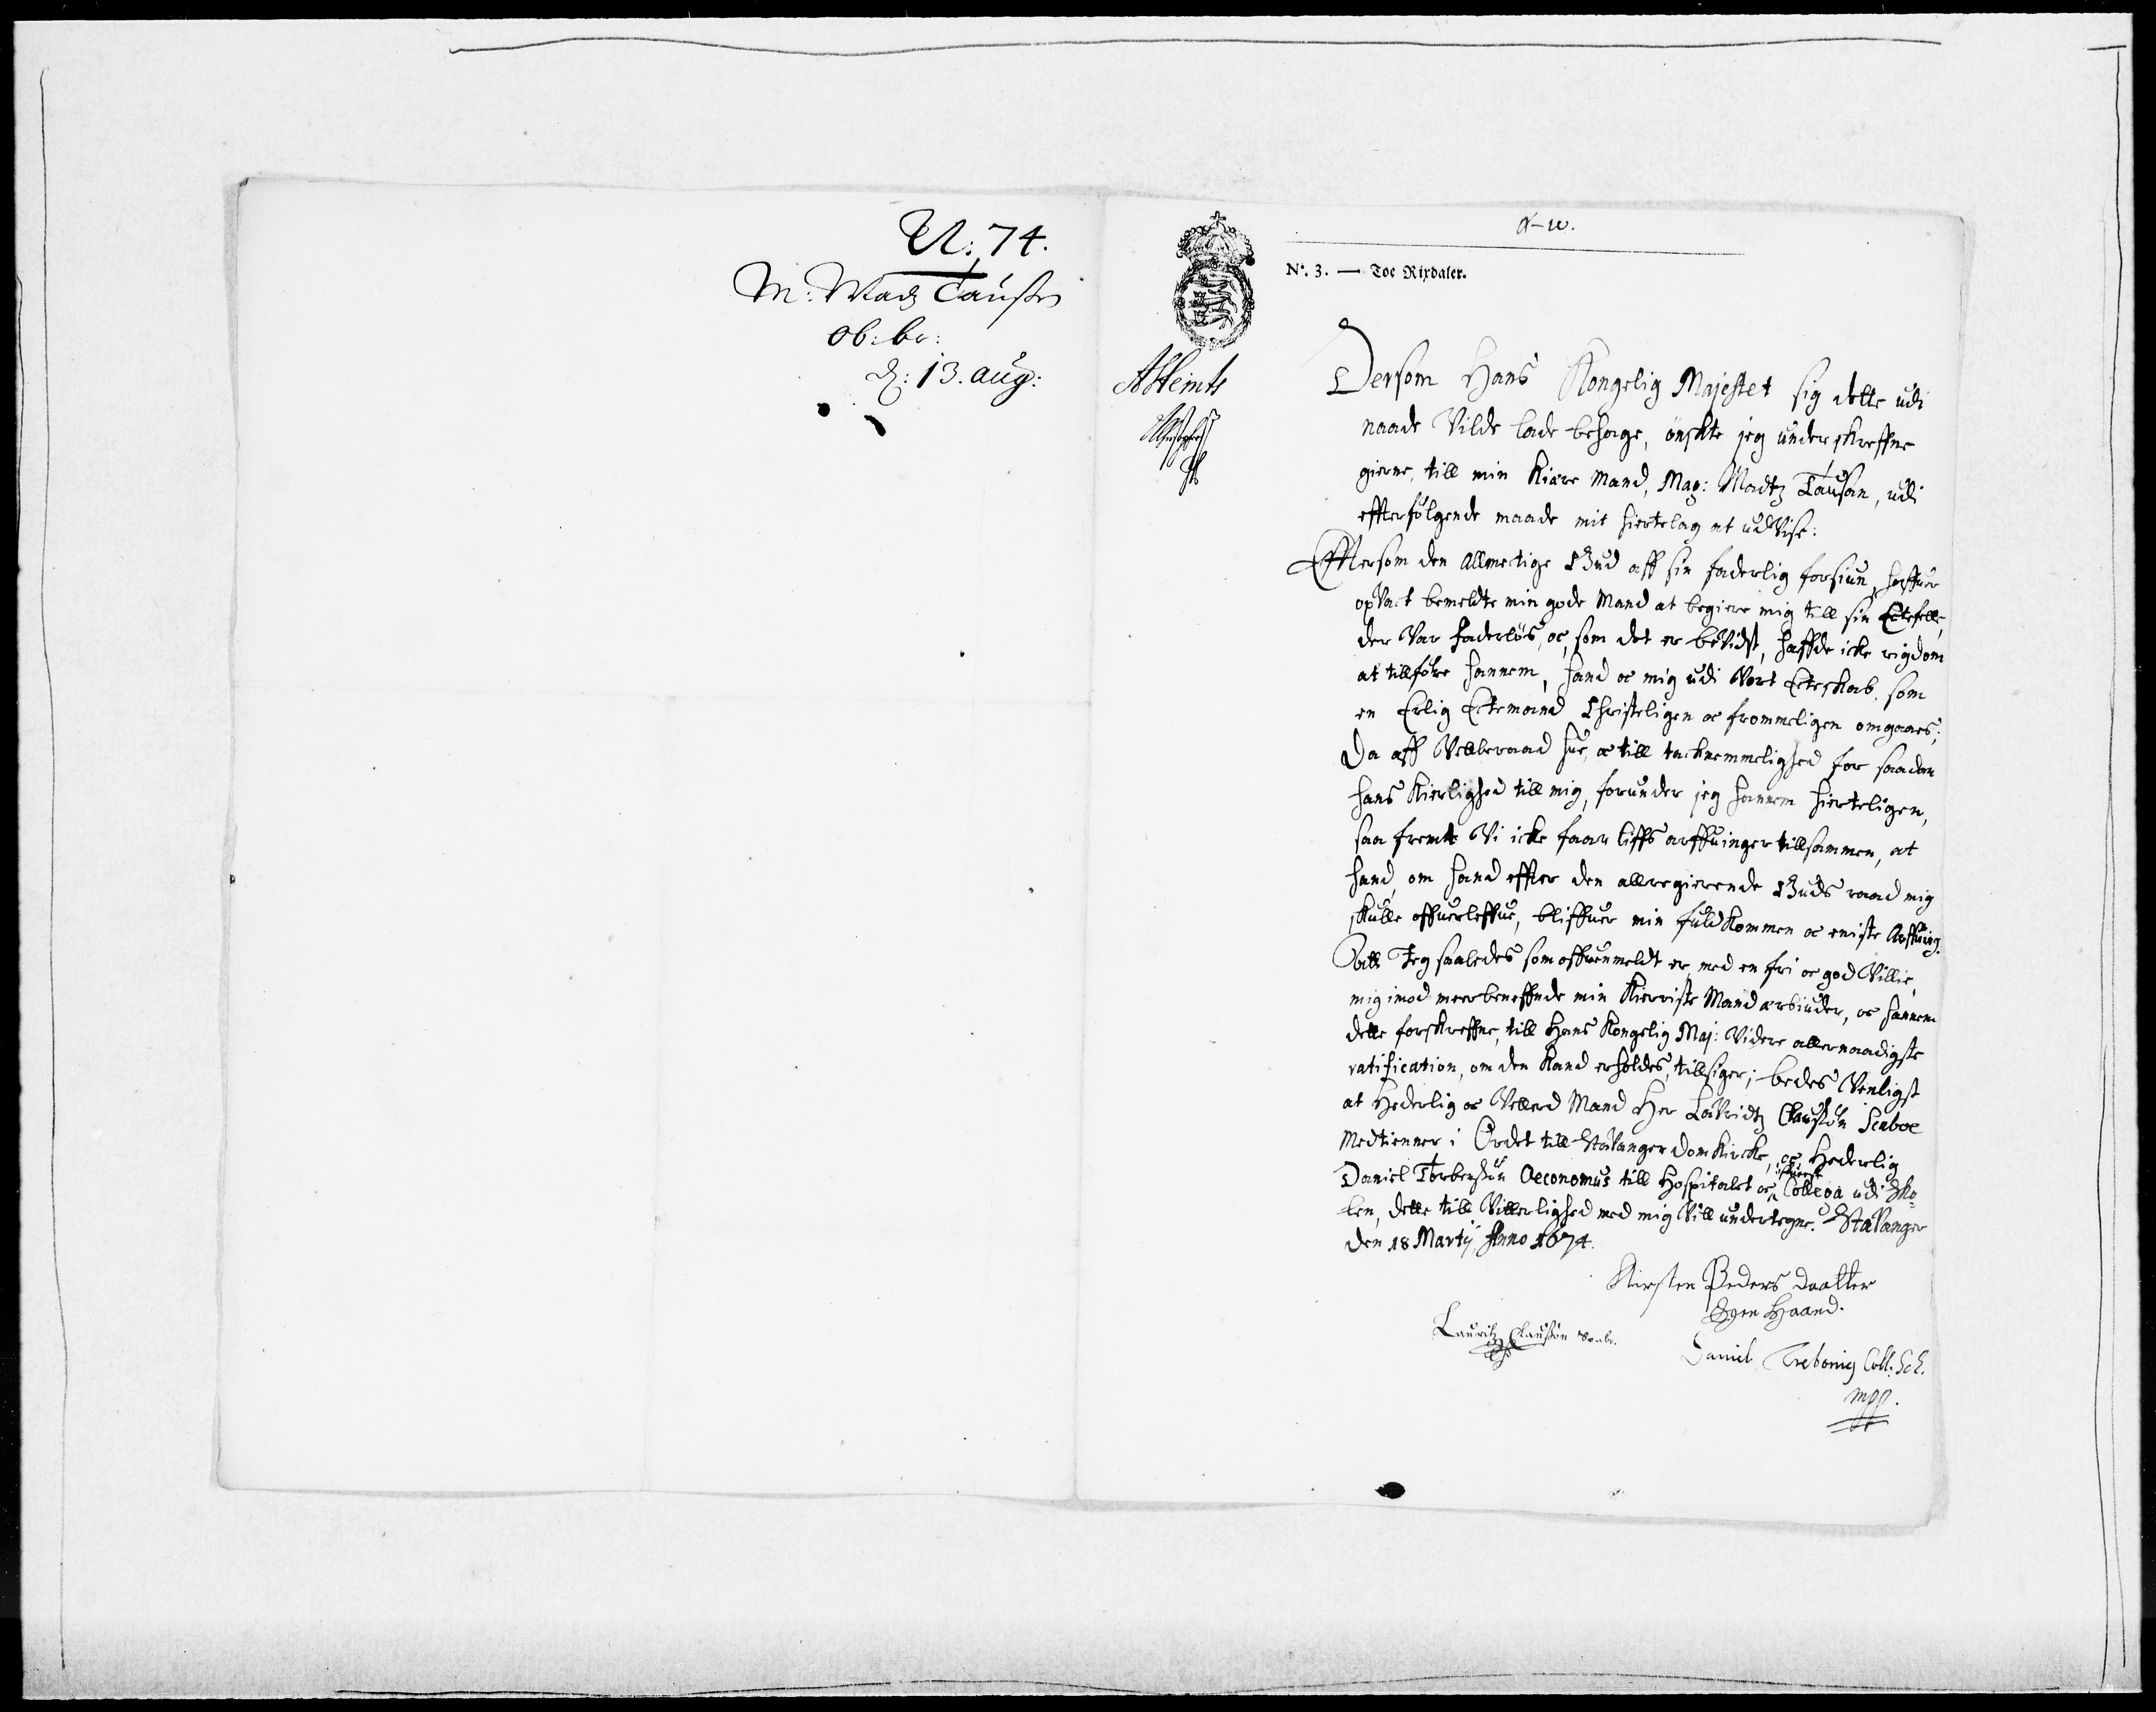 N: 74.
M: Madz Tausen
ob: br:
d: 13. aug:
A-w.
N°. 3. — Toe Rixdaler.
AHeimts
Dersom Hans Kongelig Majestet sig dette udi
naade Vilde lade behage, ønskte jeg underskreffne
gierne, till min Kiære Mand, Mag: Madtz Tausan, udi
effterfølgende maade mit hiertelag at udVise:
Efftersom den Allmectige Gud aff sin faderlig forsiun, haffuer
opVact bemeldte min gode Mand at begiere mig till sin Ectefelle,
der Var faderløs, oc, som det er beVidst, haffde icke rigdom
at tillføre hannem, hand oc mig udi Vort Ecteskab som
en Erlig Ectemand Christeligen oc frommeligen omgaaes;
Da aff Velberaad hue, oc till tacknemmelighed for saadan
hans Kierlighed till mig, forunder jeg hannem hierteligen,
saa fremt Vi icke faar liffs arffuinger tillsammen, at
hand, om hand effter den allregierende Guds raad mig
skulle offuerleffue, bliffuer min fuldkommen oc eniste Arffuing.
Att Jeg saaledes som offuenmeldt er, med en fri oc god Villie,
mig imod meerbeneffnde min Kierriste Mand erbiuder, oc hannem
dette forskreffne, till Hans Kongelig Maj: Videre allernaadigste
ratification, om den Kand erholdes, tillsiger; bedes Venligst
at Hederlig oc Vellerd Mand Her LaVridtz Claussøn Seaboe
Medtienner i Ordet till StaVanger Domkircke, oc Hederlig
Daniel Torbensøn Oeconomus till Hospitalet oc Collega udi Sko-
len, dette till Vitterlighed med mig Vill undertegne. StaVanger
den 18 Martij, Anno 1674.
Kirsten Peders Daatter
Egen Haand.
Lauritz Claussøn Seabo.
Daniel Trebonius Coll. Sch.
mpp.